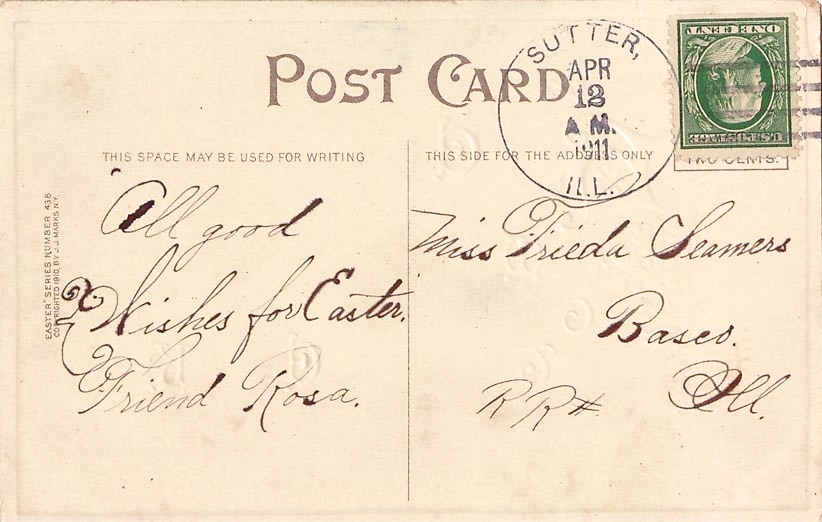 POST CARD
SUTTER,
APR
12
A.M.
1911
ILL.
ONE CENT
U.S. POSTAGE
TWO CENTS.
THIS SPACE MAY BE USED FOR WRITING
THIS SIDE FOR THE ADDRESS ONLY
EASTER" SERIES NUMBER 436
COPYRIGHTED 1910, BY J. J. MARKS N.Y.
All good
Wishes for Easter.
Friend Rosa.
Miss Frieda Leamers
Basco.
RR# Ill.